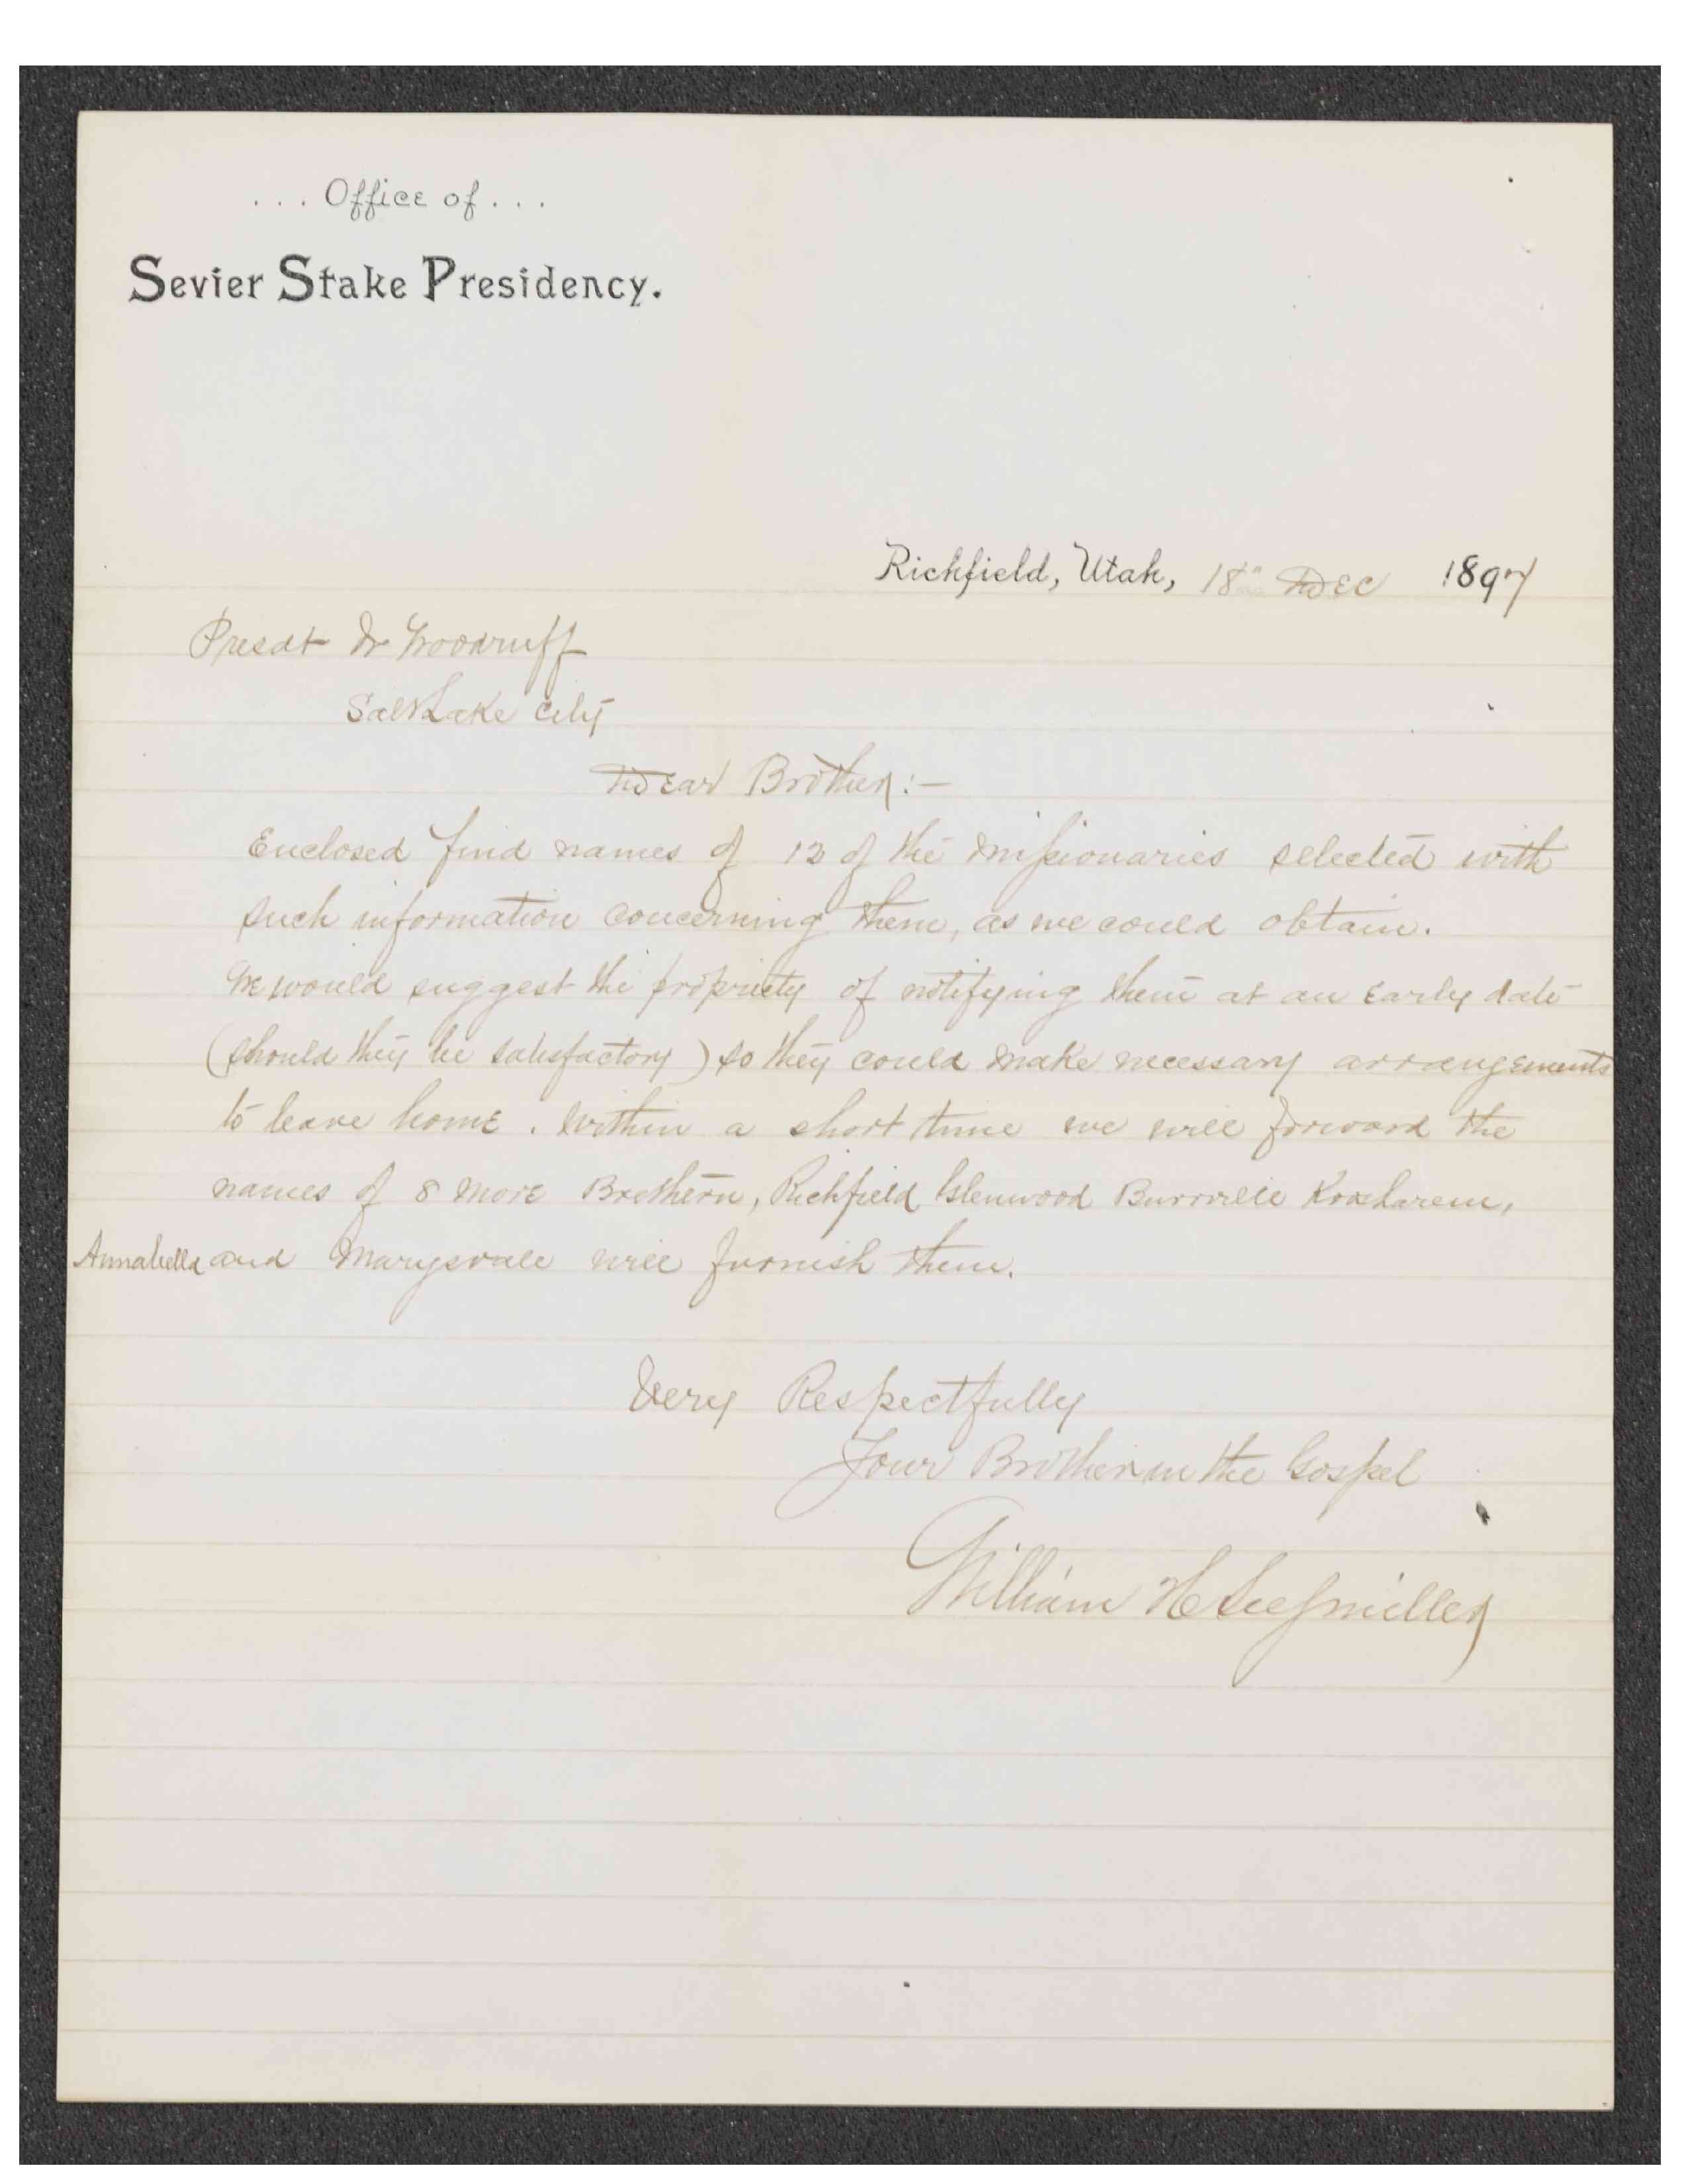 ... Office of ...
Sevier Stake Presidency.
Richfield, Utah, 18th Dec 1897
Presdt W Woodruff
Salt Lake City
Dear Brother:—
Enclosed find names of 12 of the missionaries selected with
such information concerning them, as we could obtain.
We would suggest the propriety of notifying them at an Early date
(should they be satisfactory) so they could make necessary arrangements
to leave home. Within a short time we will forward the
names of 8 more Brethern, Richfield Glenwood Burrville Koosharem,
Annabella and Marysvale will furnish them.
Very Respectfully
Your Brother in the Gospel
William H Seegmiller